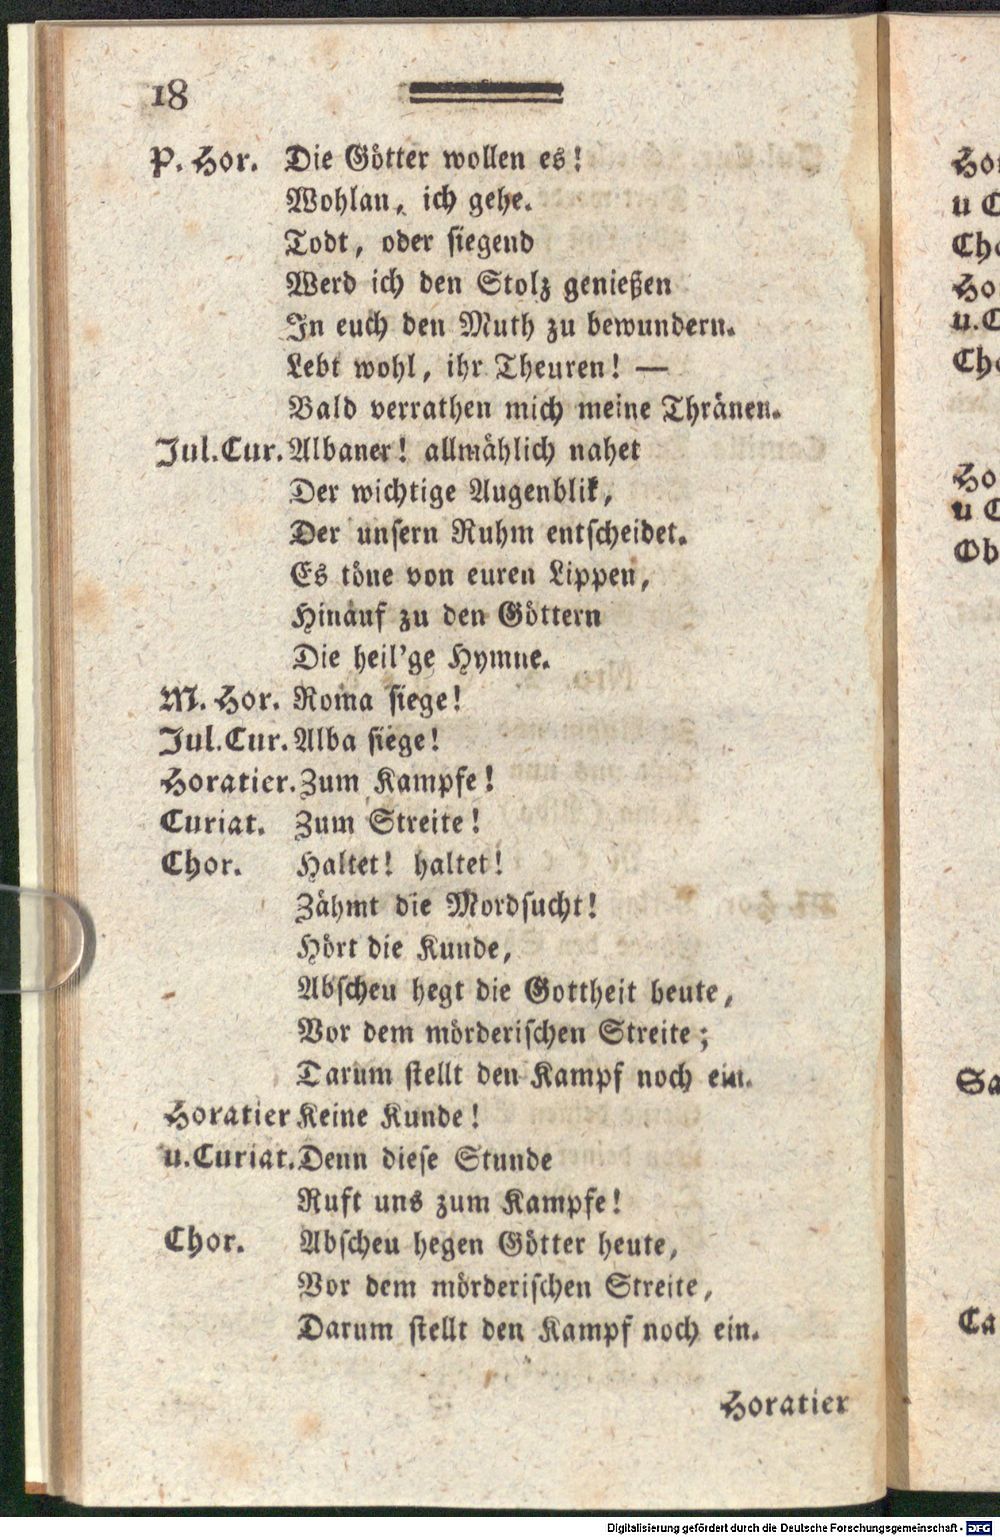 18
P. Hor. Die Götter wollen es!
Wohlan, ich gehe.
Todt, oder siegend
Werd ich den Stolz genießen
In euch den Muth zu bewundern.
Lebt wohl, ihr Theuren! —
Bald verrathen mich meine Thränen.
Jul. Cur. Albaner! allmählich nahet
Der wichtige Augenblik,
Der unsern Ruhm entscheidet.
Es töne von euren Lippen,
Hinauf zu den Göttern
Die heil'ge Hymne.
M. Hor. Roma siege!
Jul. Cur. Alba siege!
Horatier. Zum Kampfe!
Curiat. Zum Streite!
Chor. Haltet! haltet!
Zähmt die Mordsucht!
Hört die Kunde,
Abscheu hegt die Gottheit heute,
Vor dem mörderischen Streite;
Darum stellt den Kampf noch ein.
Horatier Keine Kunde!
u. Curiat. Denn diese Stunde
Ruft uns zum Kampfe!
Chor. Abscheu hegen Götter heute,
Vor dem mörderischen Streite,
Darum stellt den Kampf noch ein.
Horatier
Digitalisierung gefördert durch die Deutsche Forschungsgemeinschaft - DFG